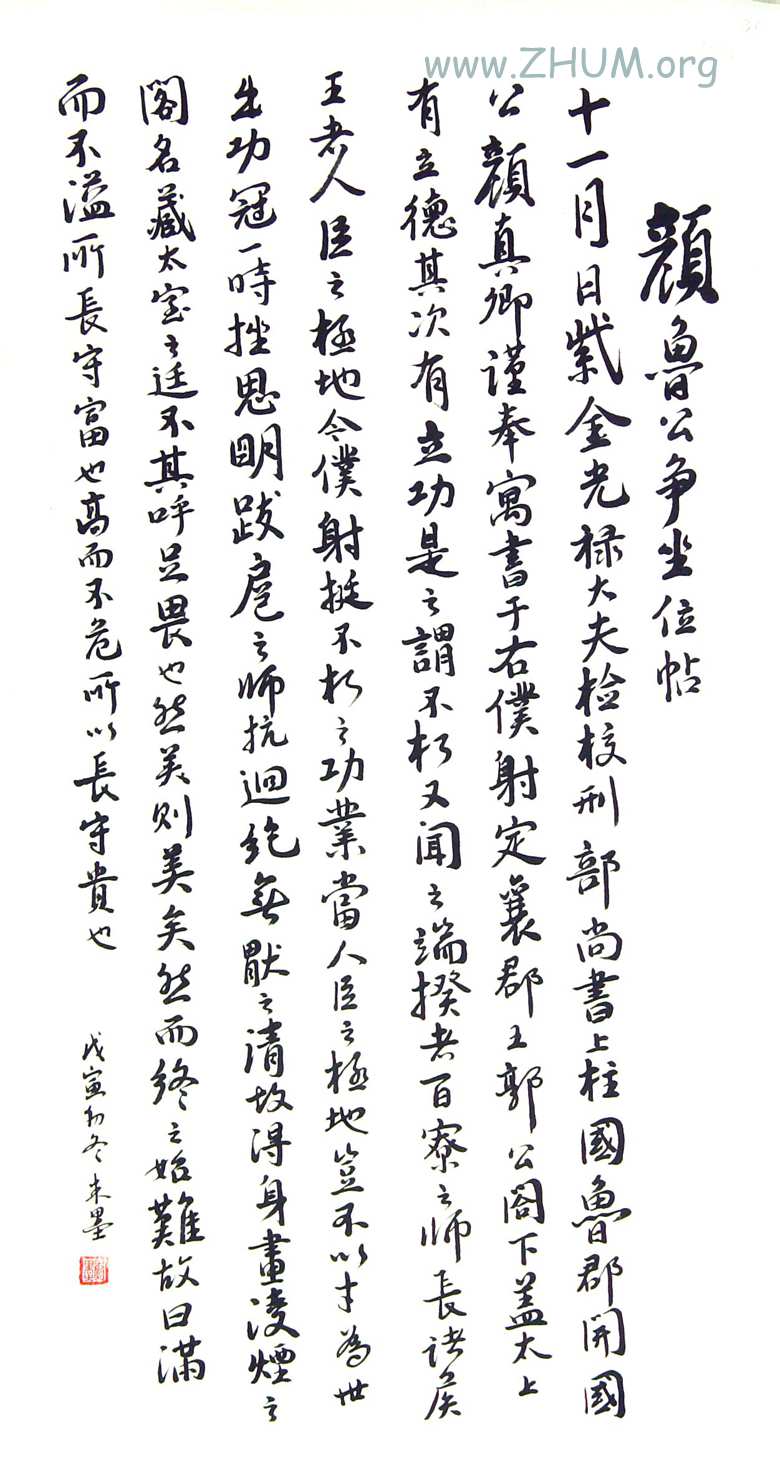 www.ZHUM.org
顏魯公爭坐位帖
十一月日紫金光祿大夫檢校刑部尚書上柱國魯郡開國
公顏真卿謹奉寓書于右僕射定襄郡王郭公閤下蓋太上
有立德其次有立功是之謂不朽又聞之端揆者百寮之師長諸侯
王者人臣之極地今僕射挺不朽之功業當人臣之極地豈不以才為世
出功冠一時挫思明跋扈之師抗迴紇無厭之請故得身畫凌煙之
閣名藏太室之廷不其呼足畏也然美則美矣然而終之始難故曰滿
而不溢所長守富也高而不危所以長守貴也
戊寅初冬末墨